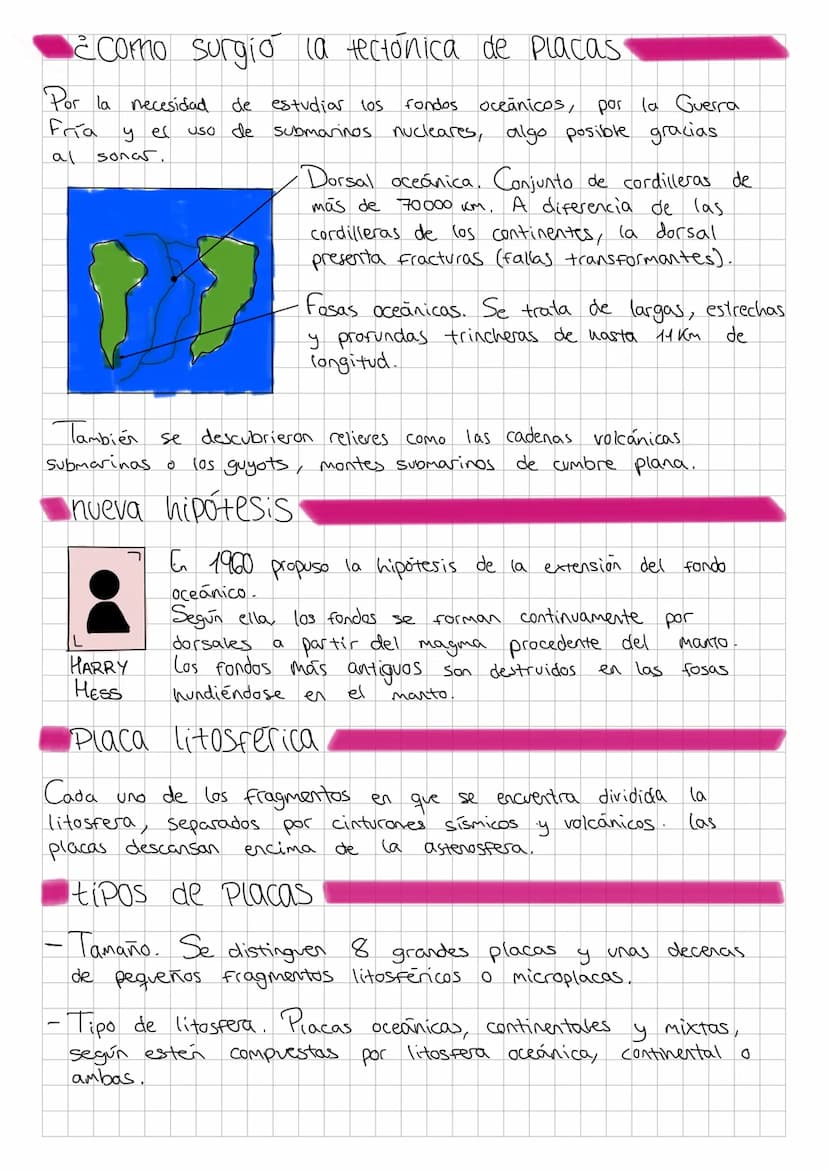 ¿Como surgió la tectónica de placas
Por la necesidad de estudiar los fondos oceánicos, por la Guerra
Fría y el uso de submarinos nucleares, algo posible gracias
al sonar.
Dorsal oceánica. Conjunto de cordilleras de
más de 70000 km. A diferencia de las
cordilleras de los continentes, la dorsal
presenta fracturas (fallas transformantes).
Fosas oceánicas. Se trata de largas, estrechas
y profundas trincheras de hasta 11 Km de
longitud.
También se descubrieron relieves como las cadenas volcánicas
submarinas o los guyots, montes submarinos de cumbre plana.
nueva hipótesis
En 1960 propuso la hipótesis de la extensión del fondo
oceánico.
Según ella, los fondos se forman continuamente por
dorsales a partir del magma procedente del manto.
Los fondos más antiguos son destruidos en las fosas
hundiéndose en el manto.
HARRY
HESS
Placa litosférica
Cada uno de los fragmentos en que se encuentra dividida la
litosfera, separados por cinturones sísmicos y volcánicos. Las
placas descansan encima de la astenosfera.
tipos de placas
- Tamaño. Se distinguen 8 grandes placas y unas decenas
de pequeños fragmentos litosféricos o microplacas.
- Tipo de litosfera. Placas oceánicas, continentales y mixtas,
según estén compuestas por litosfera oceánica, continental o
ambas.